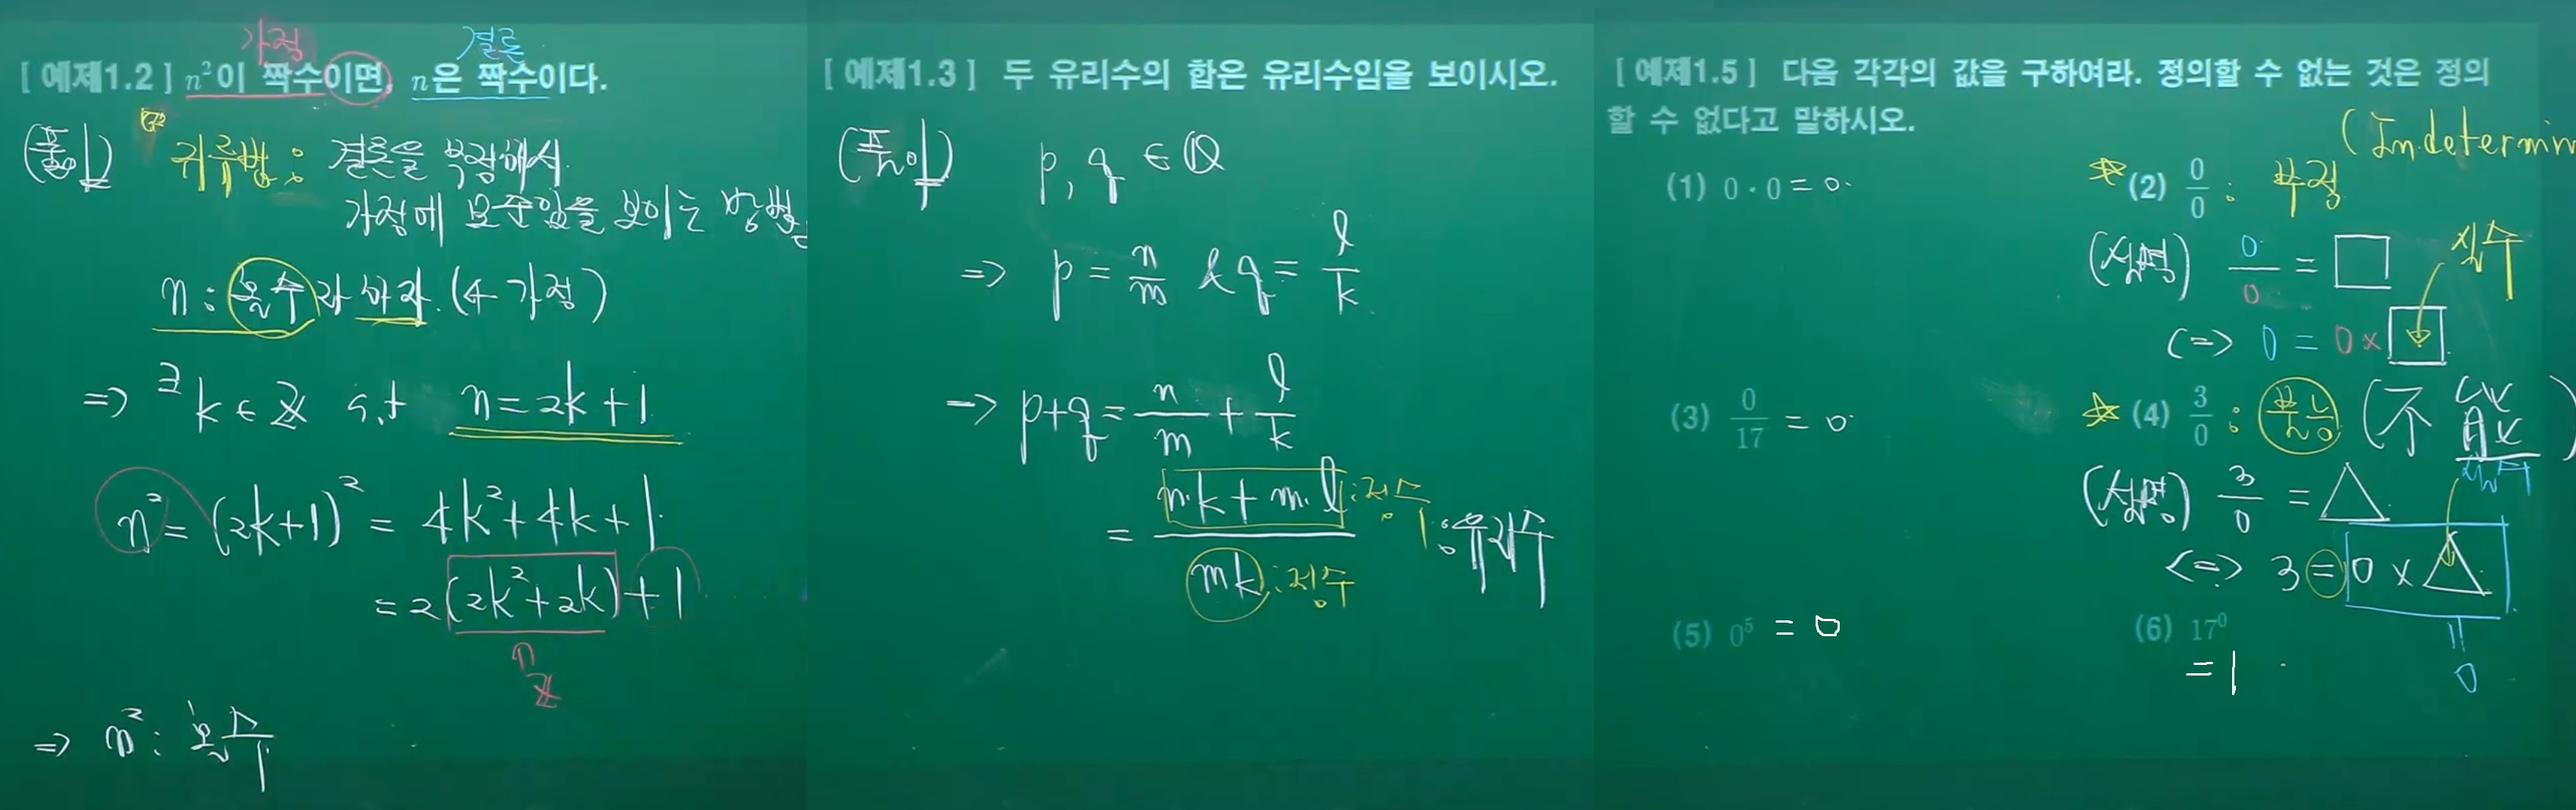 가정 결론
[예제1.2] n²이 짝수이면, n은 짝수이다.
(풀이) 귀류법: 결론을 부정해서
가정에 모순임을 보이는 방법
n: 홀수라 하자. (수 가정)
=> ∃k ∈ ℤ s.t n=2k+1
n² = (2k+1)² = 4k²+4k+1
= 2(2k²+2k)+1
∩
ℤ
=> n²: 홀수
[예제1.3] 두 유리수의 합은 유리수임을 보이시오.
(풀이) p, q ∈ ℚ
=> p = n/m & q = l/k
=> p+q = n/m + l/k
= (n·k + m·l)/mk : 유리수
: 정수
: 정수
[예제1.5] 다음 각각의 값을 구하여라. 정의할 수 없는 것은 정의
할 수 없다고 말하시오.
(Indetermin
(1) 0·0 = 0
(2) 0/0 : 부정
(설명) 0/0 = □
실수
<=> 0 = 0×□
(3) 0/17 = 0
(4) 3/0 : 불능 (不能)
(설명) 3/0 = △
실수
<=> 3 = 0 × △
(5) 0⁵ = 0
(6) 17⁰
= 1
॥
0